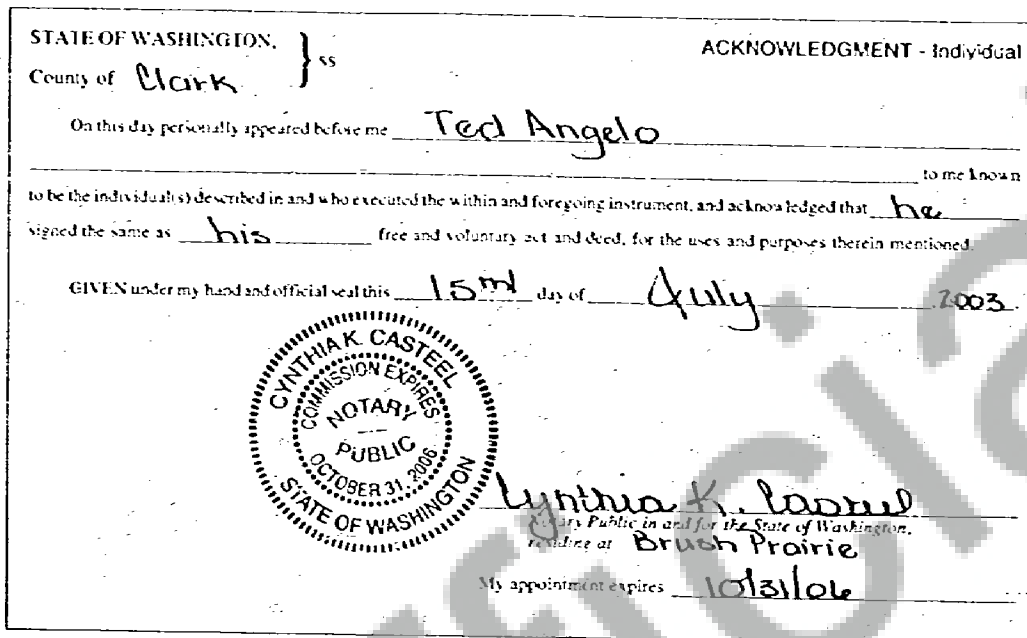 STATE OF WASHINGTON,
County of Clark
} ss
ACKNOWLEDGMENT - Individual
On this day personally appeared before me Ted Angelo
to me known
to be the individual(s) described in and who executed the within and foregoing instrument, and acknowledged that he
signed the same as his free and voluntary act and deed, for the uses and purposes therein mentioned.
GIVEN under my hand and official seal this 15th day of July 2003.
CYNTHIA K. CASTEEL
COMMISSION EXPIRES
NOTARY
PUBLIC
OCTOBER 31, 2006
STATE OF WASHINGTON
Cynthia K. Casteel
Notary Public in and for the State of Washington,
residing at Brush Prairie
My appointment expires 10/31/06